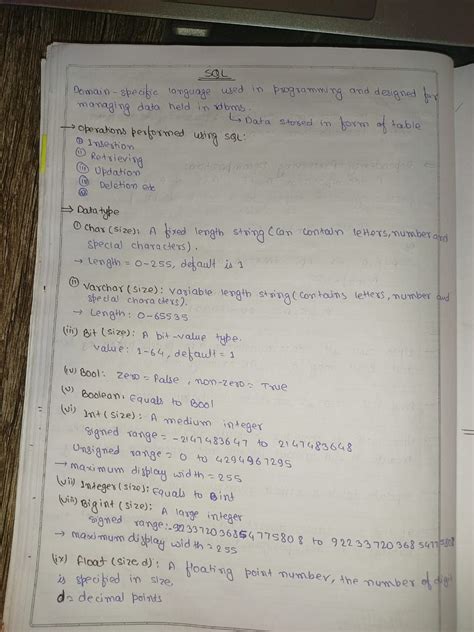 SQL
Domain-specific language used in programming and designed for
managing data held in rdbms.
↳ Data stored in form of table
→ Operations performed using SQL:
(i) Insertion
(ii) Retrieving
(iii) Updation
(iv) Deletion etc
⇒ Datatype
(i) Char (size): A fixed length string (Can contain letters, number and
special characters).
→ Length = 0-255, default is 1
(ii) Varchar (size): Variable length string (contains letters, number and
special characters).
→ Length: 0-65535
(iii) Bit (size): A bit-value type.
value: 1-64, default = 1
(iv) Bool: Zero = False, non-zero = True
(v) Boolean: Equals to Bool
(vi) Int (size): A medium integer
Signed range = -2147483647 to 2147483648
Unsigned range = 0 to 4294967295
→ maximum display width = 255
(vii) Integer (size): Equals to int
(viii) Bigint (size): A large integer
Signed range:-9223372036854775808 to 9223372036854775808
→ maximum display width = 255
(ix) Float (size d): A floating point number, the number of digit
is specified in size.
d = decimal points